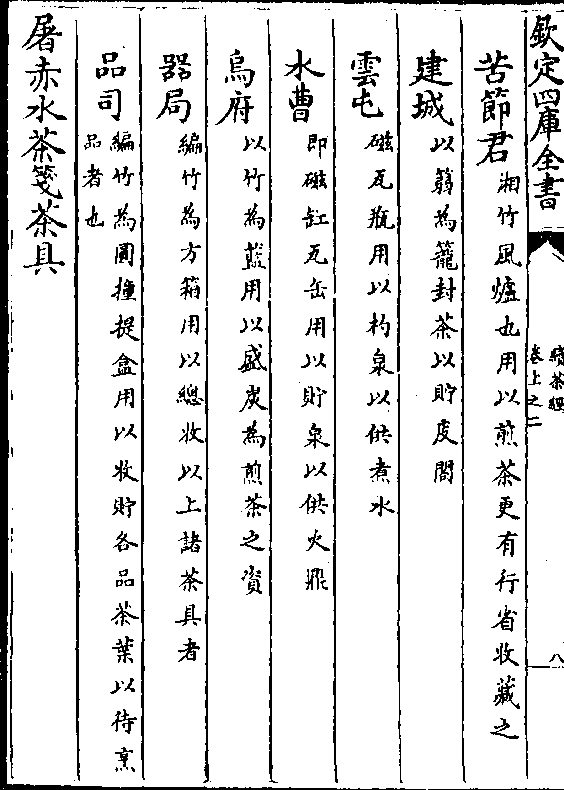 欽定四庫全書
續茶經
卷上之二
八
苦節君 湘竹風爐也用以煎茶更有行省收藏之
建城 以篛為籠封茶以貯庋閣
雲屯 磁瓦瓶用以杓泉以供煮水
水曹 即磁缸瓦缶用以貯泉以供火鼎
烏府 以竹為藍用以盛炭為煎茶之資
器局 編竹為方箱用以總收以上諸茶具者
品司 編竹為圓撞提盒用以收貯各品茶葉以待烹
品者也
屠赤水茶箋茶具